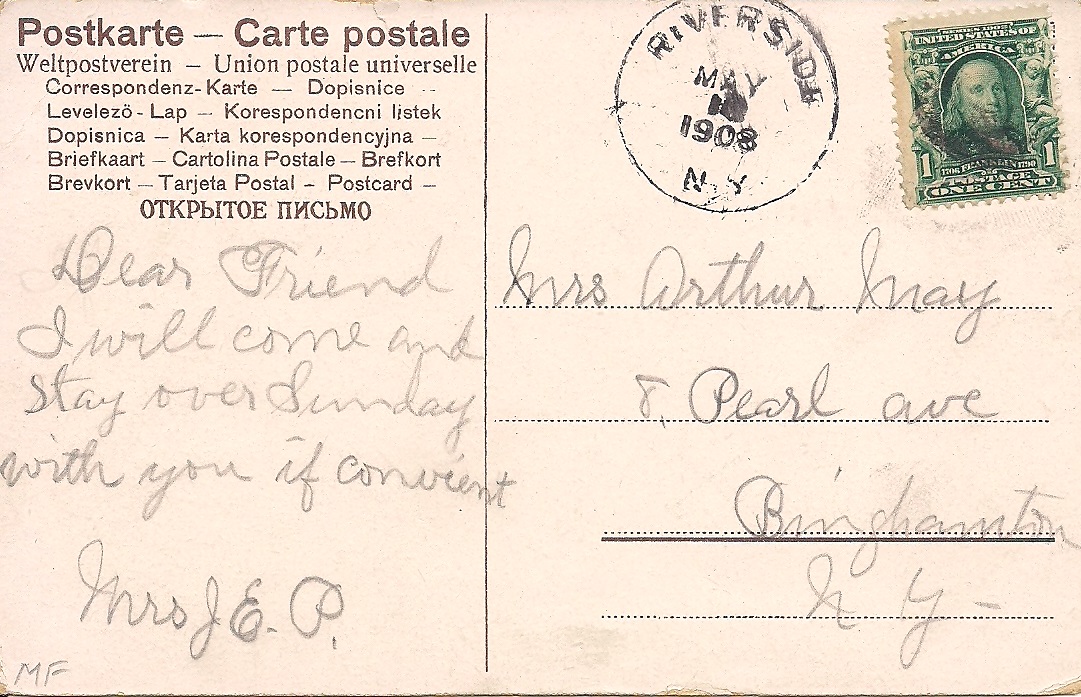 Postkarte — Carte postale
Weltpostverein — Union postale universelle
Correspondenz-Karte — Dopisnice --
Levelezö-Lap — Korespondencni listek
Dopisnica — Karta korespondencyjna —
Briefkaart — Cartolina Postale — Brefkort
Brevkort — Tarjeta Postal - Postcard —
ОТКРЫТОЕ ПИСЬМО
Dear Friend
I will come and
stay over Sunday
with you if convient
Mrs J. E. P.
MF
RIVERSIDE
MAY
1908
N.Y.
UNITED STATES OF
AMERICA
1 1706 FRANKLIN 1790 1
POSTAGE
ONE CENT
Mrs Arthur May
8, Pearl ave
Binghamton
N Y -